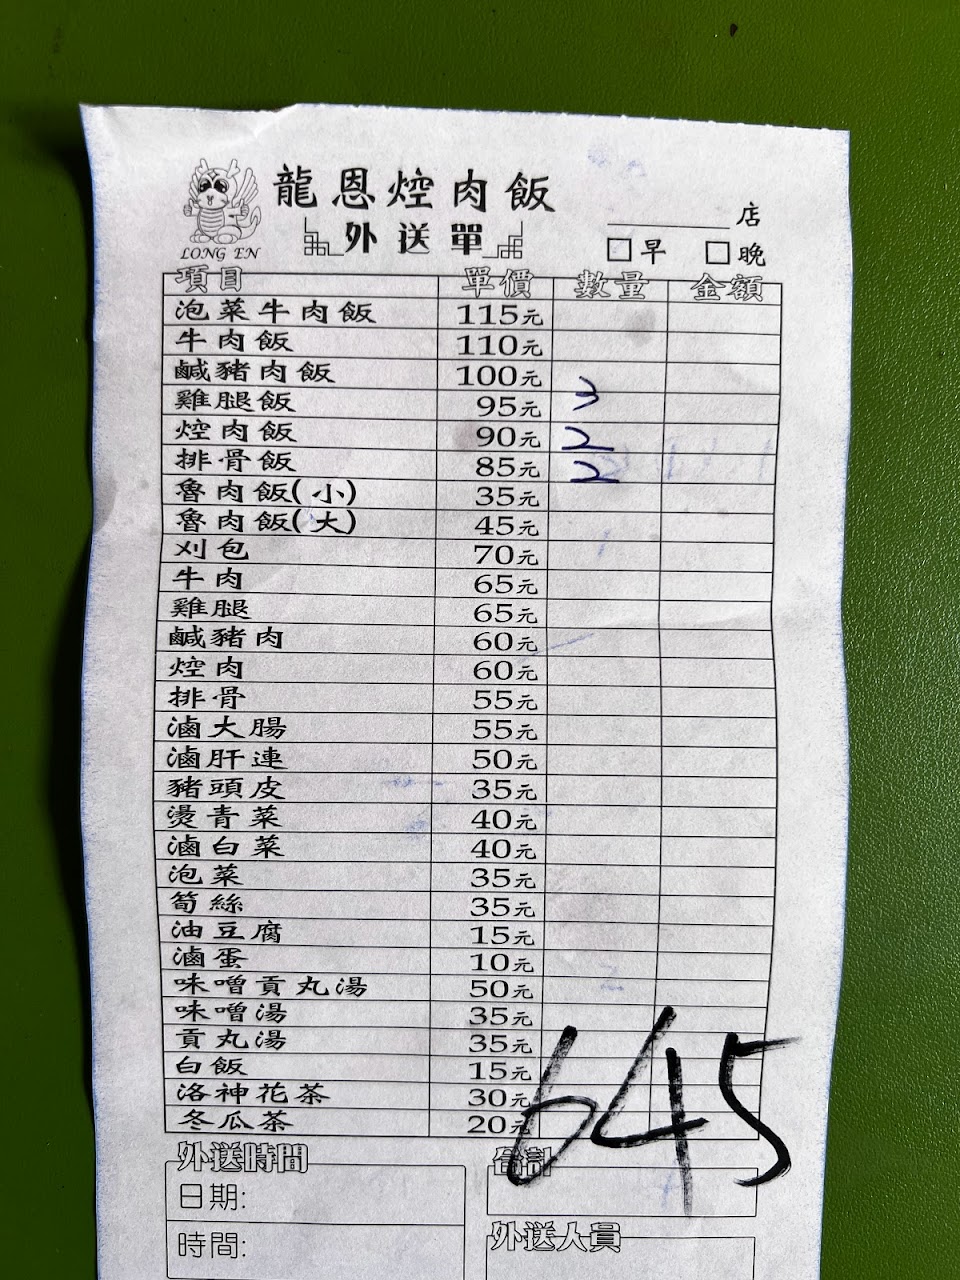 龍恩焢肉飯
外送單
LONG EN
店
□早 □晚
項目 單價 數量 金額
泡菜牛肉飯 115元
牛肉飯 110元
鹹豬肉飯 100元
雞腿飯 95元 3
焢肉飯 90元 2
排骨飯 85元 2
魯肉飯(小) 35元
魯肉飯(大) 45元
刈包 70元
牛肉 65元
雞腿 65元
鹹豬肉 60元
焢肉 60元
排骨 55元
滷大腸 55元
滷肝連 50元
豬頭皮 35元
燙青菜 40元
滷白菜 40元
泡菜 35元
筍絲 35元
油豆腐 15元
滷蛋 10元
味噌貢丸湯 50元
味噌湯 35元
貢丸湯 35元
白飯 15元
洛神花茶 30元
冬瓜茶 20元
645
外送時間 合計
日期:
時間: 外送人員